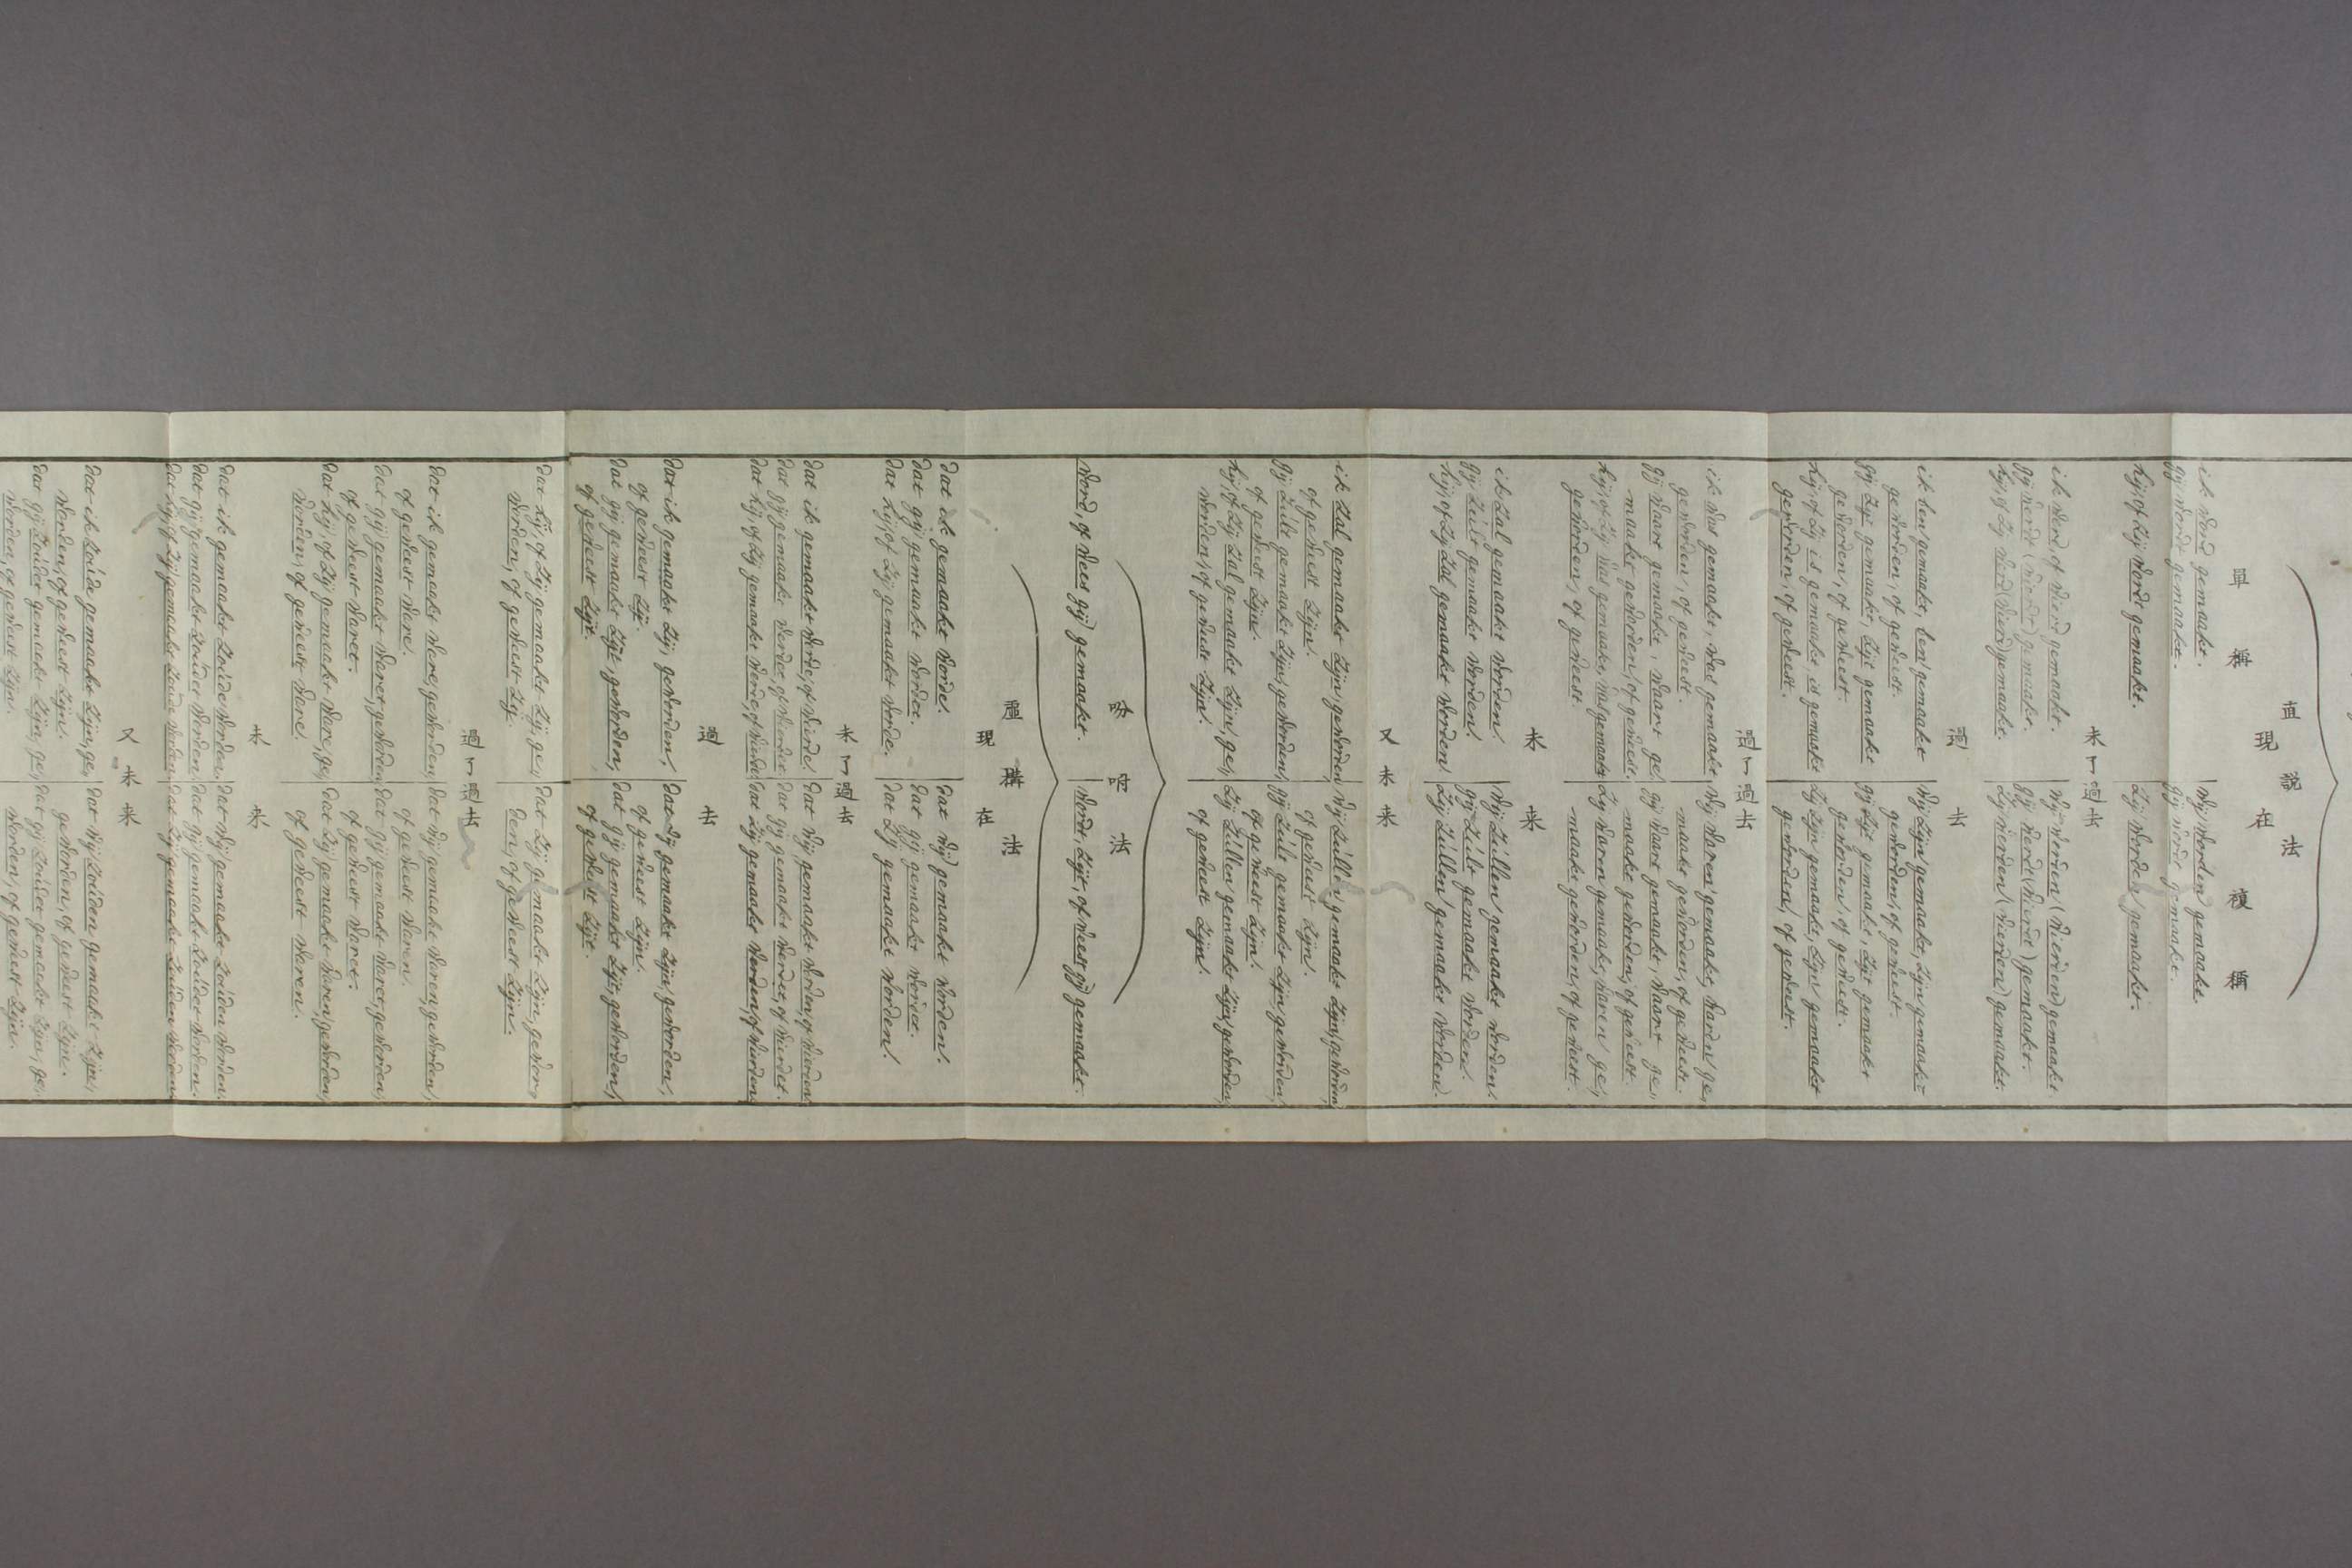 直説法
現在
單稱 複稱
ik word gemaakt. wij worden gemaakt.
gij wordt gemaakt. gij wordt gemaakt.
hij, of zij wordt gemaakt. zij worden gemaakt.
未了過去
ik werd, of wierd gemaakt. wij werden (wierden) gemaakt
gij werdt (wierdt) gemaakt. gij werdt (wierdt) gemaakt.
hij, of zij werd (wierd) gemaakt. zij werden (wierden) gemaakt.
過去
ik ben gemaakt, ben gemaakt wij zijn gemaakt, zijn gemaakt
geworden, of geweest. geworden, of geweest.
gij zijt gemaakt, zijt gemaakt gij zijt gemaakt, zijt gemaakt
geworden, of geweest. geworden, of geweest.
hij, of zij is gemaakt, is gemaakt zij zijn gemaakt, zijn gemaakt
geworden, of geweest. geworden, of geweest.
過了過去
ik was gemaakt, was gemaakt wij waren gemaakt, waren ge,
geworden, of geweest. maakt geworden, of geweest.
gij waart gemaakt, waart ge, gij waart gemaakt, waart ge,
maakt geworden, of geweest. maakt geworden, of geweest.
hij, of zij was gemaakt, was gemaakt zij waren gemaakt, waren ge,
geworden, of geweest. maakt geworden, of geweest.
未来
ik zal gemaakt worden. wij zullen gemaakt worden.
gij zult gemaakt worden. gij zult gemaakt worden.
hij, of zij zal gemaakt worden. zij zullen gemaakt worden.
又未来
ik zal gemaakt zijn, geworden, wij zullen gemaakt zijn, geworden,
of geweest zijn. of geweest zijn.
gij zult gemaakt zijn, geworden, gij zult gemaakt zijn, geworden,
of geweest zijn. of geweest zijn.
hij, of zij zal gemaakt zijn, ge, zij zullen gemaakt zijn, geworden,
worden, of geweest zijn. of geweest zijn.
吩咐法
word, of wees gij gemaakt. wordt, zijt, of weest gij gemaakt.
虛構法
現在
dat ik gemaakt worde. dat wij gemaakt worden.
dat gij gemaakt wordet. dat gij gemaakt wordet.
dat hij, of zij gemaakt worde. dat zij gemaakt worden.
未了過去
dat ik gemaakt werde, of wierde. dat wij gemaakt werden, of wierden.
dat gij gemaakt werdet, of wierdet. dat gij gemaakt werdet, of wierdet.
dat hij, of zij gemaakt werde, of wierde. dat zij gemaakt werden, of wierden.
過去
dat ik gemaakt zij, geworden, dat wij gemaakt zijn, geworden,
of geweest zij. of geweest zijn.
dat gij gemaakt zijt, geworden, dat gij gemaakt zijt, geworden,
of geweest zijt. of geweest zijt.
dat hij, of zij gemaakt zij, ge, dat zij gemaakt zijn, gewor,
worden, of geweest zij. den, of geweest zijn.
過了過去
dat ik gemaakt ware, geworden, dat wij gemaakt waren, geworden,
of geweest ware. of geweest waren.
dat gij gemaakt waret, geworden, dat gij gemaakt waret, geworden,
of geweest waret. of geweest waret.
dat hij, of zij gemaakt ware, ge, dat zij gemaakt waren, geworden,
worden, of geweest ware. of geweest waren.
未来
dat ik gemaakt zoude worden. dat wij gemaakt zouden worden.
dat gij gemaakt zoudet worden. dat gij gemaakt zoudet worden.
dat hij, of zij gemaakt zoude worden. dat zij gemaakt zouden worden.
又未来
dat ik zoude gemaakt zijn, ge, dat wij zouden gemaakt zijn,
worden, of geweest zijn. geworden, of geweest zijn.
dat gij zoudet gemaakt zijn, ge, dat gij zoudet gemaakt zijn, ge,
worden, of geweest zijn. worden, of geweest zijn.